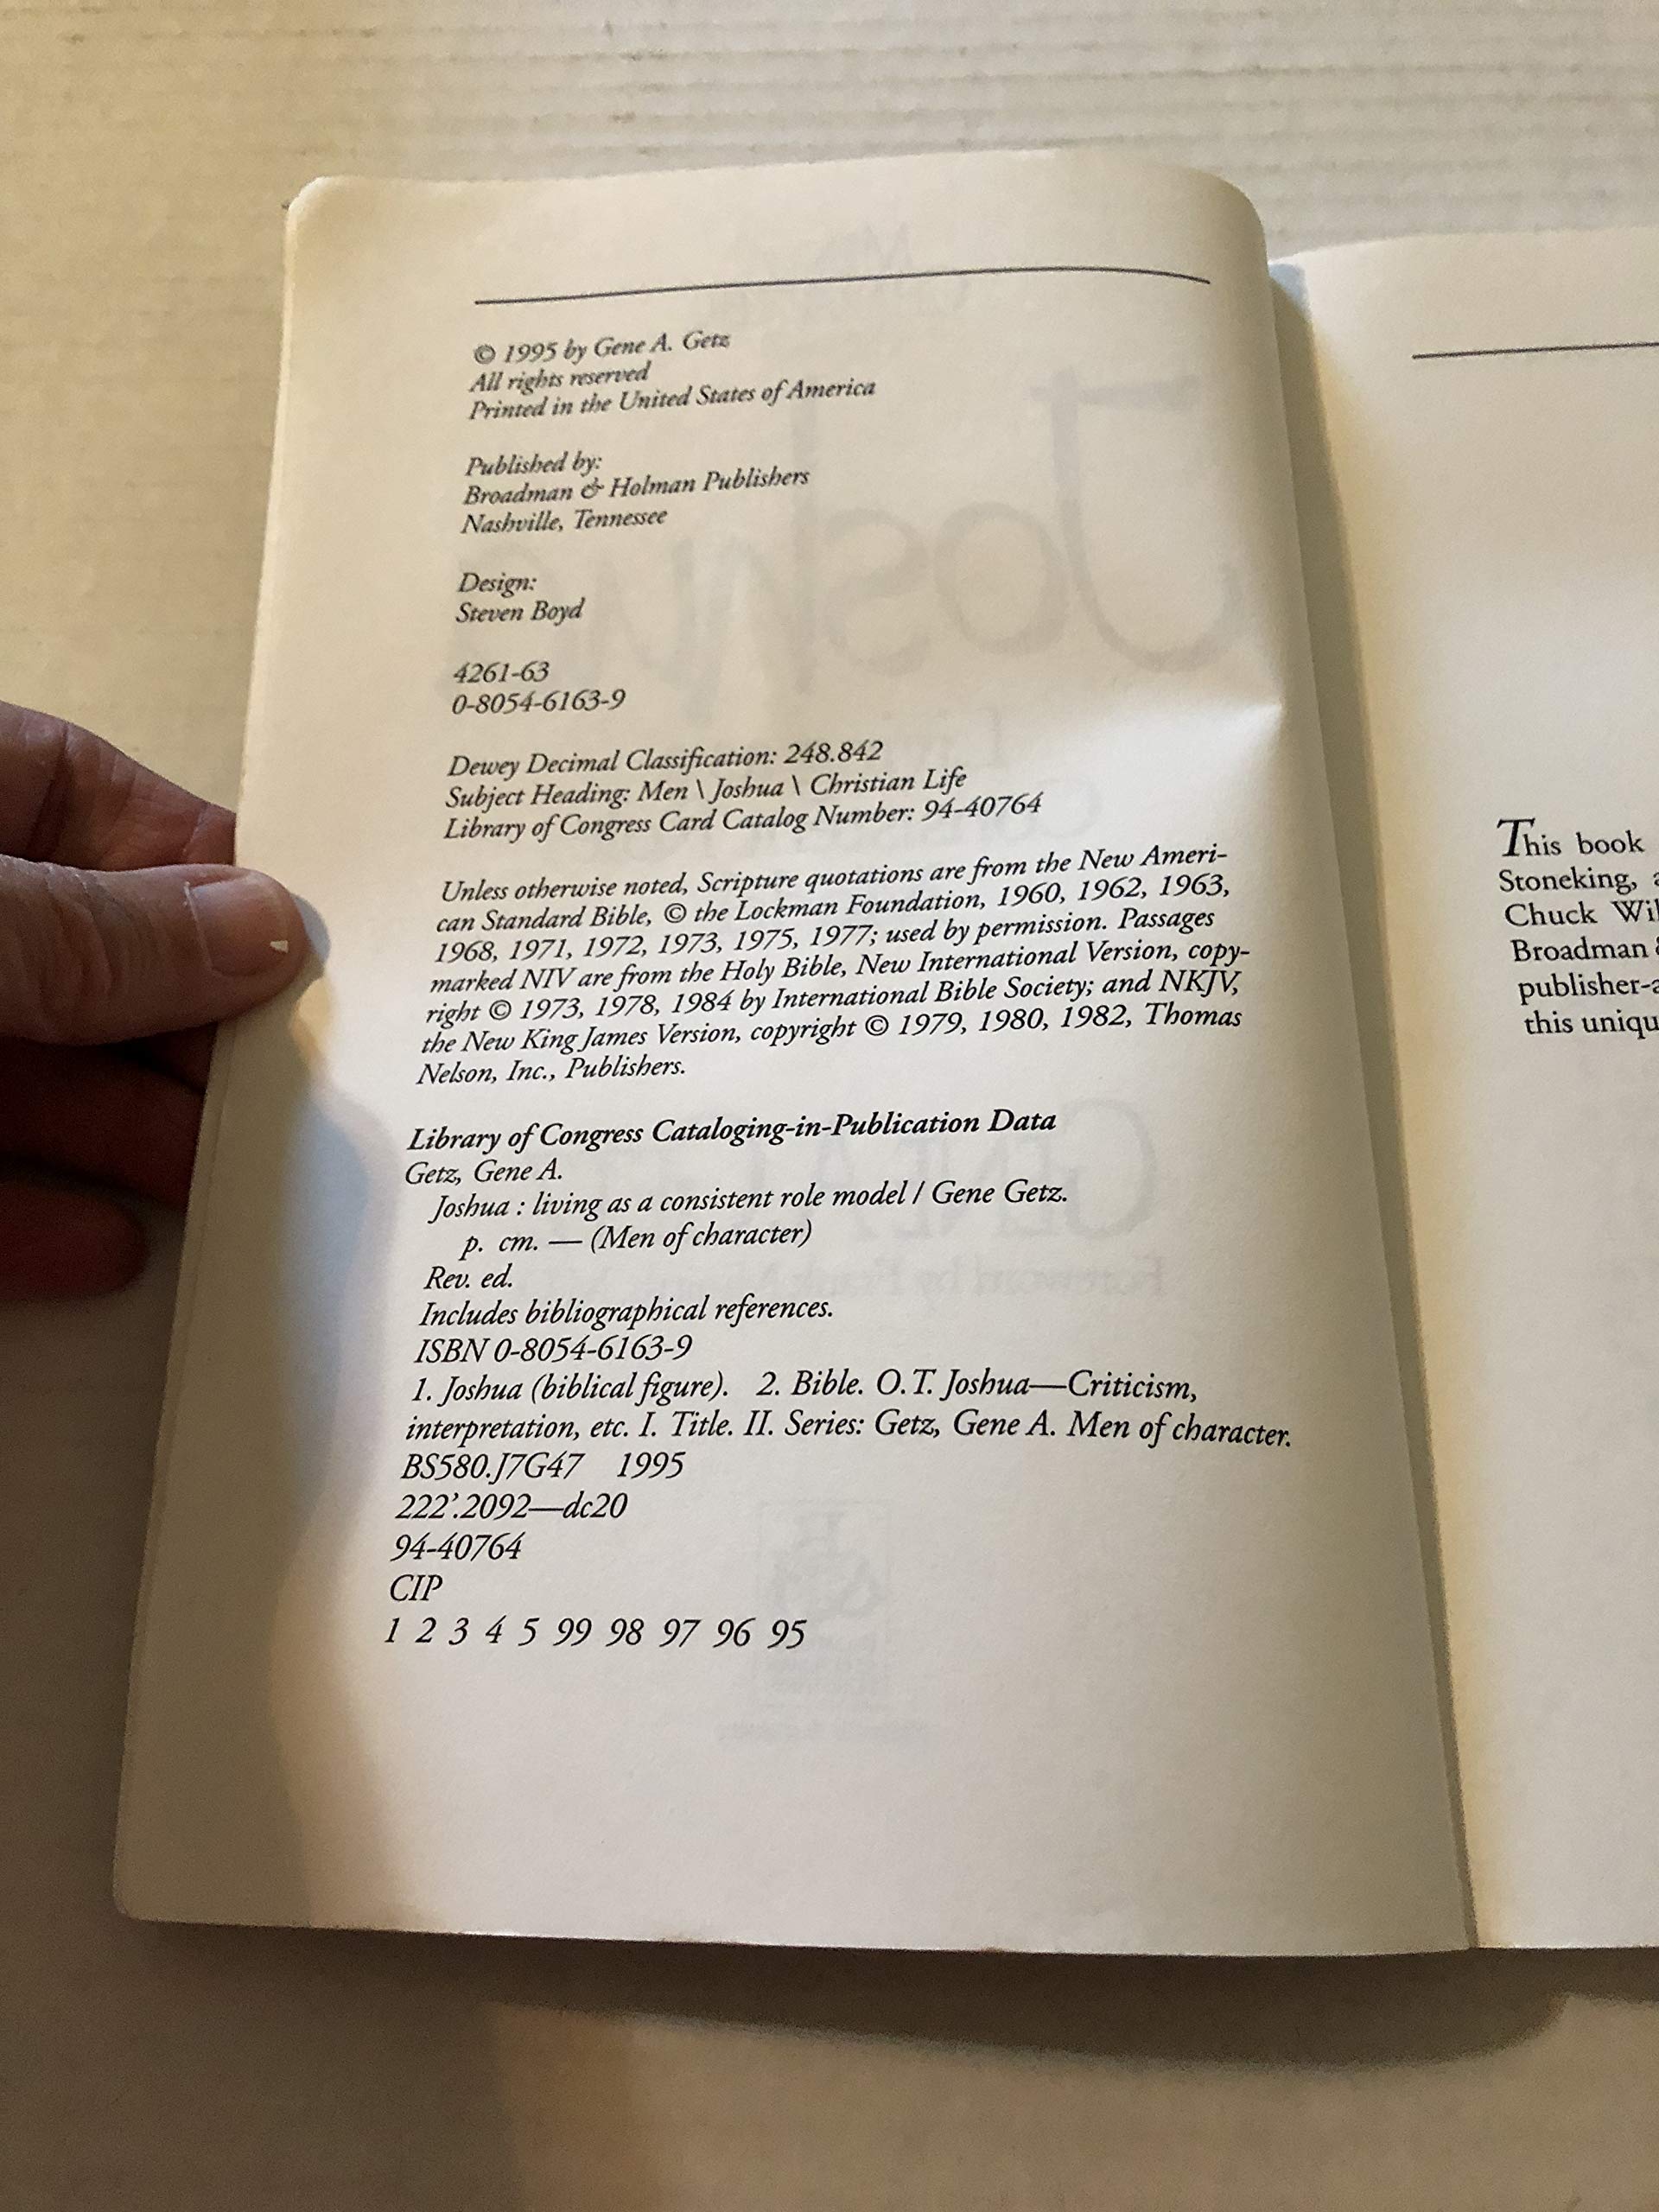 © 1995 by Gene A. Getz
All rights reserved
Printed in the United States of America
Published by:
Broadman & Holman Publishers
Nashville, Tennessee
Design:
Steven Boyd
4261-63
0-8054-6163-9
Dewey Decimal Classification: 248.842
Subject Heading: Men \ Joshua \ Christian Life
Library of Congress Card Catalog Number: 94-40764
Unless otherwise noted, Scripture quotations are from the New Ameri-
can Standard Bible, © the Lockman Foundation, 1960, 1962, 1963,
1968, 1971, 1972, 1973, 1975, 1977; used by permission. Passages
marked NIV are from the Holy Bible, New International Version, copy-
right © 1973, 1978, 1984 by International Bible Society; and NKJV,
the New King James Version, copyright © 1979, 1980, 1982, Thomas
Nelson, Inc., Publishers.
Library of Congress Cataloging-in-Publication Data
Getz, Gene A.
Joshua : living as a consistent role model / Gene Getz.
p. cm. — (Men of character)
Rev. ed.
Includes bibliographical references.
ISBN 0-8054-6163-9
1. Joshua (biblical figure). 2. Bible. O.T. Joshua—Criticism,
interpretation, etc. I. Title. II. Series: Getz, Gene A. Men of character.
BS580.J7G47 1995
222'.2092—dc20
94-40764
CIP
1 2 3 4 5 99 98 97 96 95
This book
Stoneking,
Chuck
Broadman
this